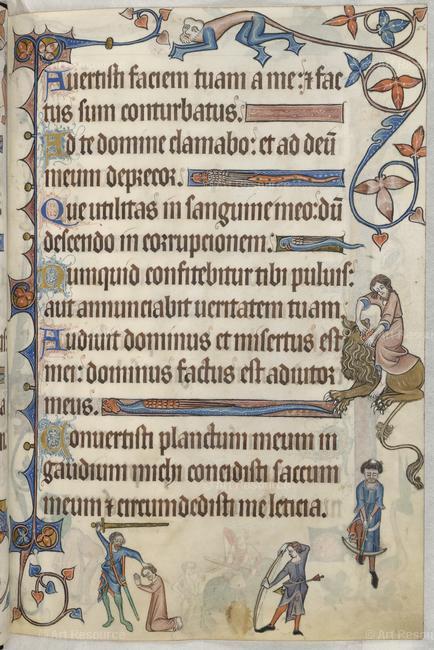 Auertisti faciem tuam a me: ⁊ fac
tus sum conturbatus.
Ad te domine clamabo: et ad deū
meum deprecor.
Que utilitas in sanguine meo: dū
descendo in corrupcionem.
Numquid confitebitur tibi puluis:
aut annunciabit ueritatem tuam
Audiuit dominus et misertus est
mei: dominus factus est adiutor
meus.
Conuertisti planctum meum in
gaudium michi concidisti saccum
meum ⁊ circumdedisti me leticia.
© Art Resource
© Art Resou